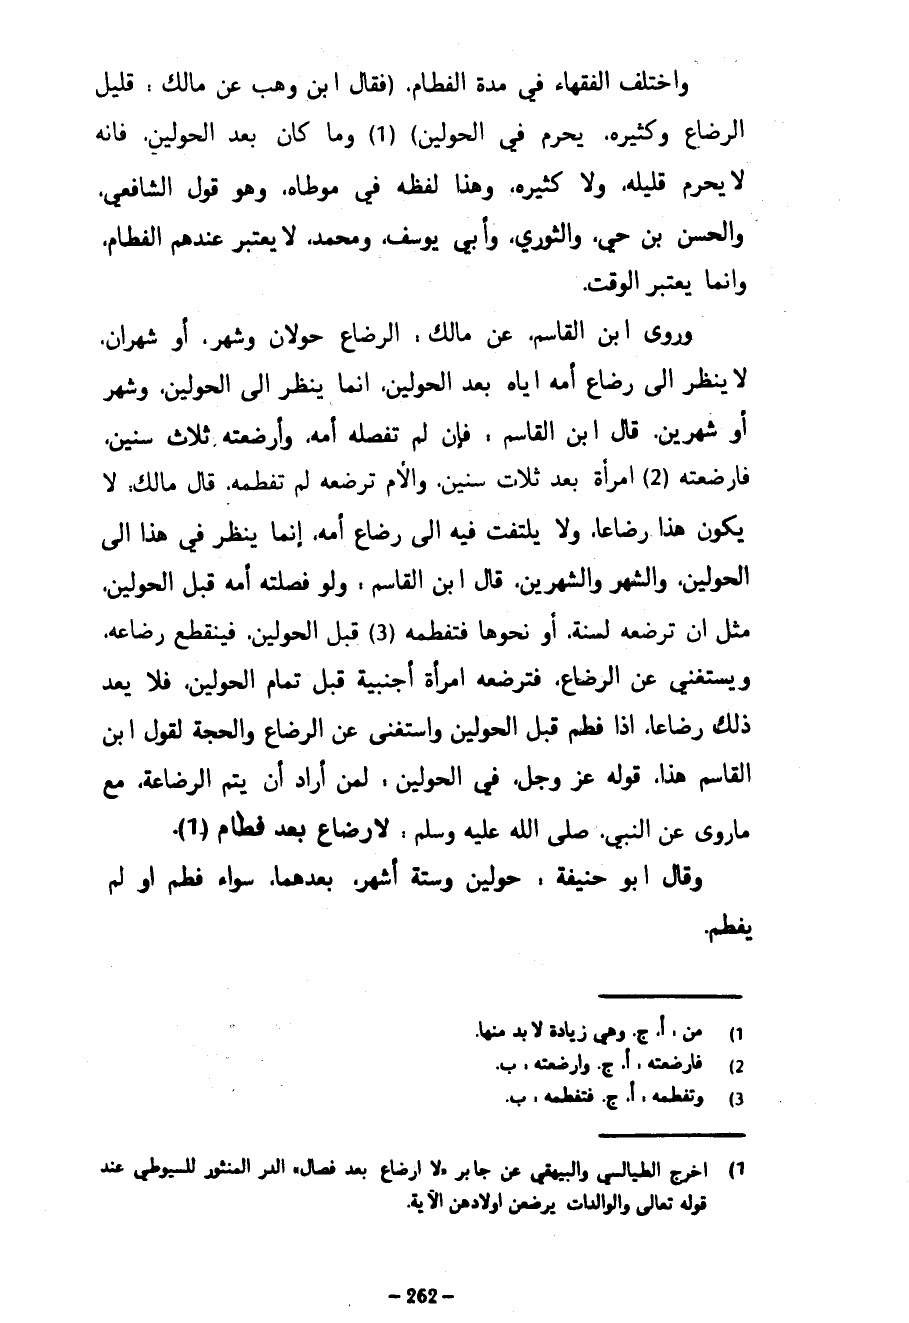 واختلف الفقهاء في مدة الفطام. (فقال ابن وهب عن مالك : قليل
الرضاع وكثيره. يحرم في الحولين) (1) وما كان بعد الحولين. فانه
لا يحرم قليله. ولا كثيره. وهذا لفظه في موطاه. وهو قول الشافعي.
والحسن بن حي. والثوري. وأبي يوسف. ومحمد. لا يعتبر عندهم الفطام.
وانما يعتبر الوقت.
وروى ابن القاسم. عن مالك : الرضاع حولان وشهر. أو شهران.
لا ينظر الى رضاع أمه اياه بعد الحولين. انما ينظر الى الحولين. وشهر
أو شهرين. قال ابن القاسم : فإن لم تفصله أمه. وأرضعته ثلاث سنين.
فارضعته (2) امرأة بعد ثلاث سنين. والأم ترضعه لم تفطمه. قال مالك: لا
يكون هذا رضاعا. ولا يلتفت فيه الى رضاع أمه. إنما ينظر في هذا الى
الحولين. والشهر والشهرين. قال ابن القاسم : ولو فصلته أمه قبل الحولين.
مثل ان ترضعه لسنة. أو نحوها فتفطمه (3) قبل الحولين. فينقطع رضاعه.
ويستغني عن الرضاع. فترضعه امرأة أجنبية قبل تمام الحولين. فلا يعد
ذلك رضاعا. اذا فطم قبل الحولين واستغنى عن الرضاع والحجة لقول ابن
القاسم هذا. قوله عز وجل. في الحولين : لمن أراد أن يتم الرضاعة. مع
ماروى عن النبي. صلى الله عليه وسلم : لارضاع بعد فطام (1).
وقال ابو حنيفة : حولين وستة أشهر. بعدهما. سواء فطم او لم
يفطم.
1) من : أ. ج. وهي زيادة لا بد منها.
2) فارضعته : أ. ج. وارضعته : ب.
3) وتفطمه : أ. ج. فتفطمه : ب.
1) اخرج الطيالسي والبيهقي عن جابر «لا ارضاع بعد فصال» الدر المنثور للسيوطي عند
قوله تعالى والوالدات يرضعن اولادهن الآية.
- 262 -